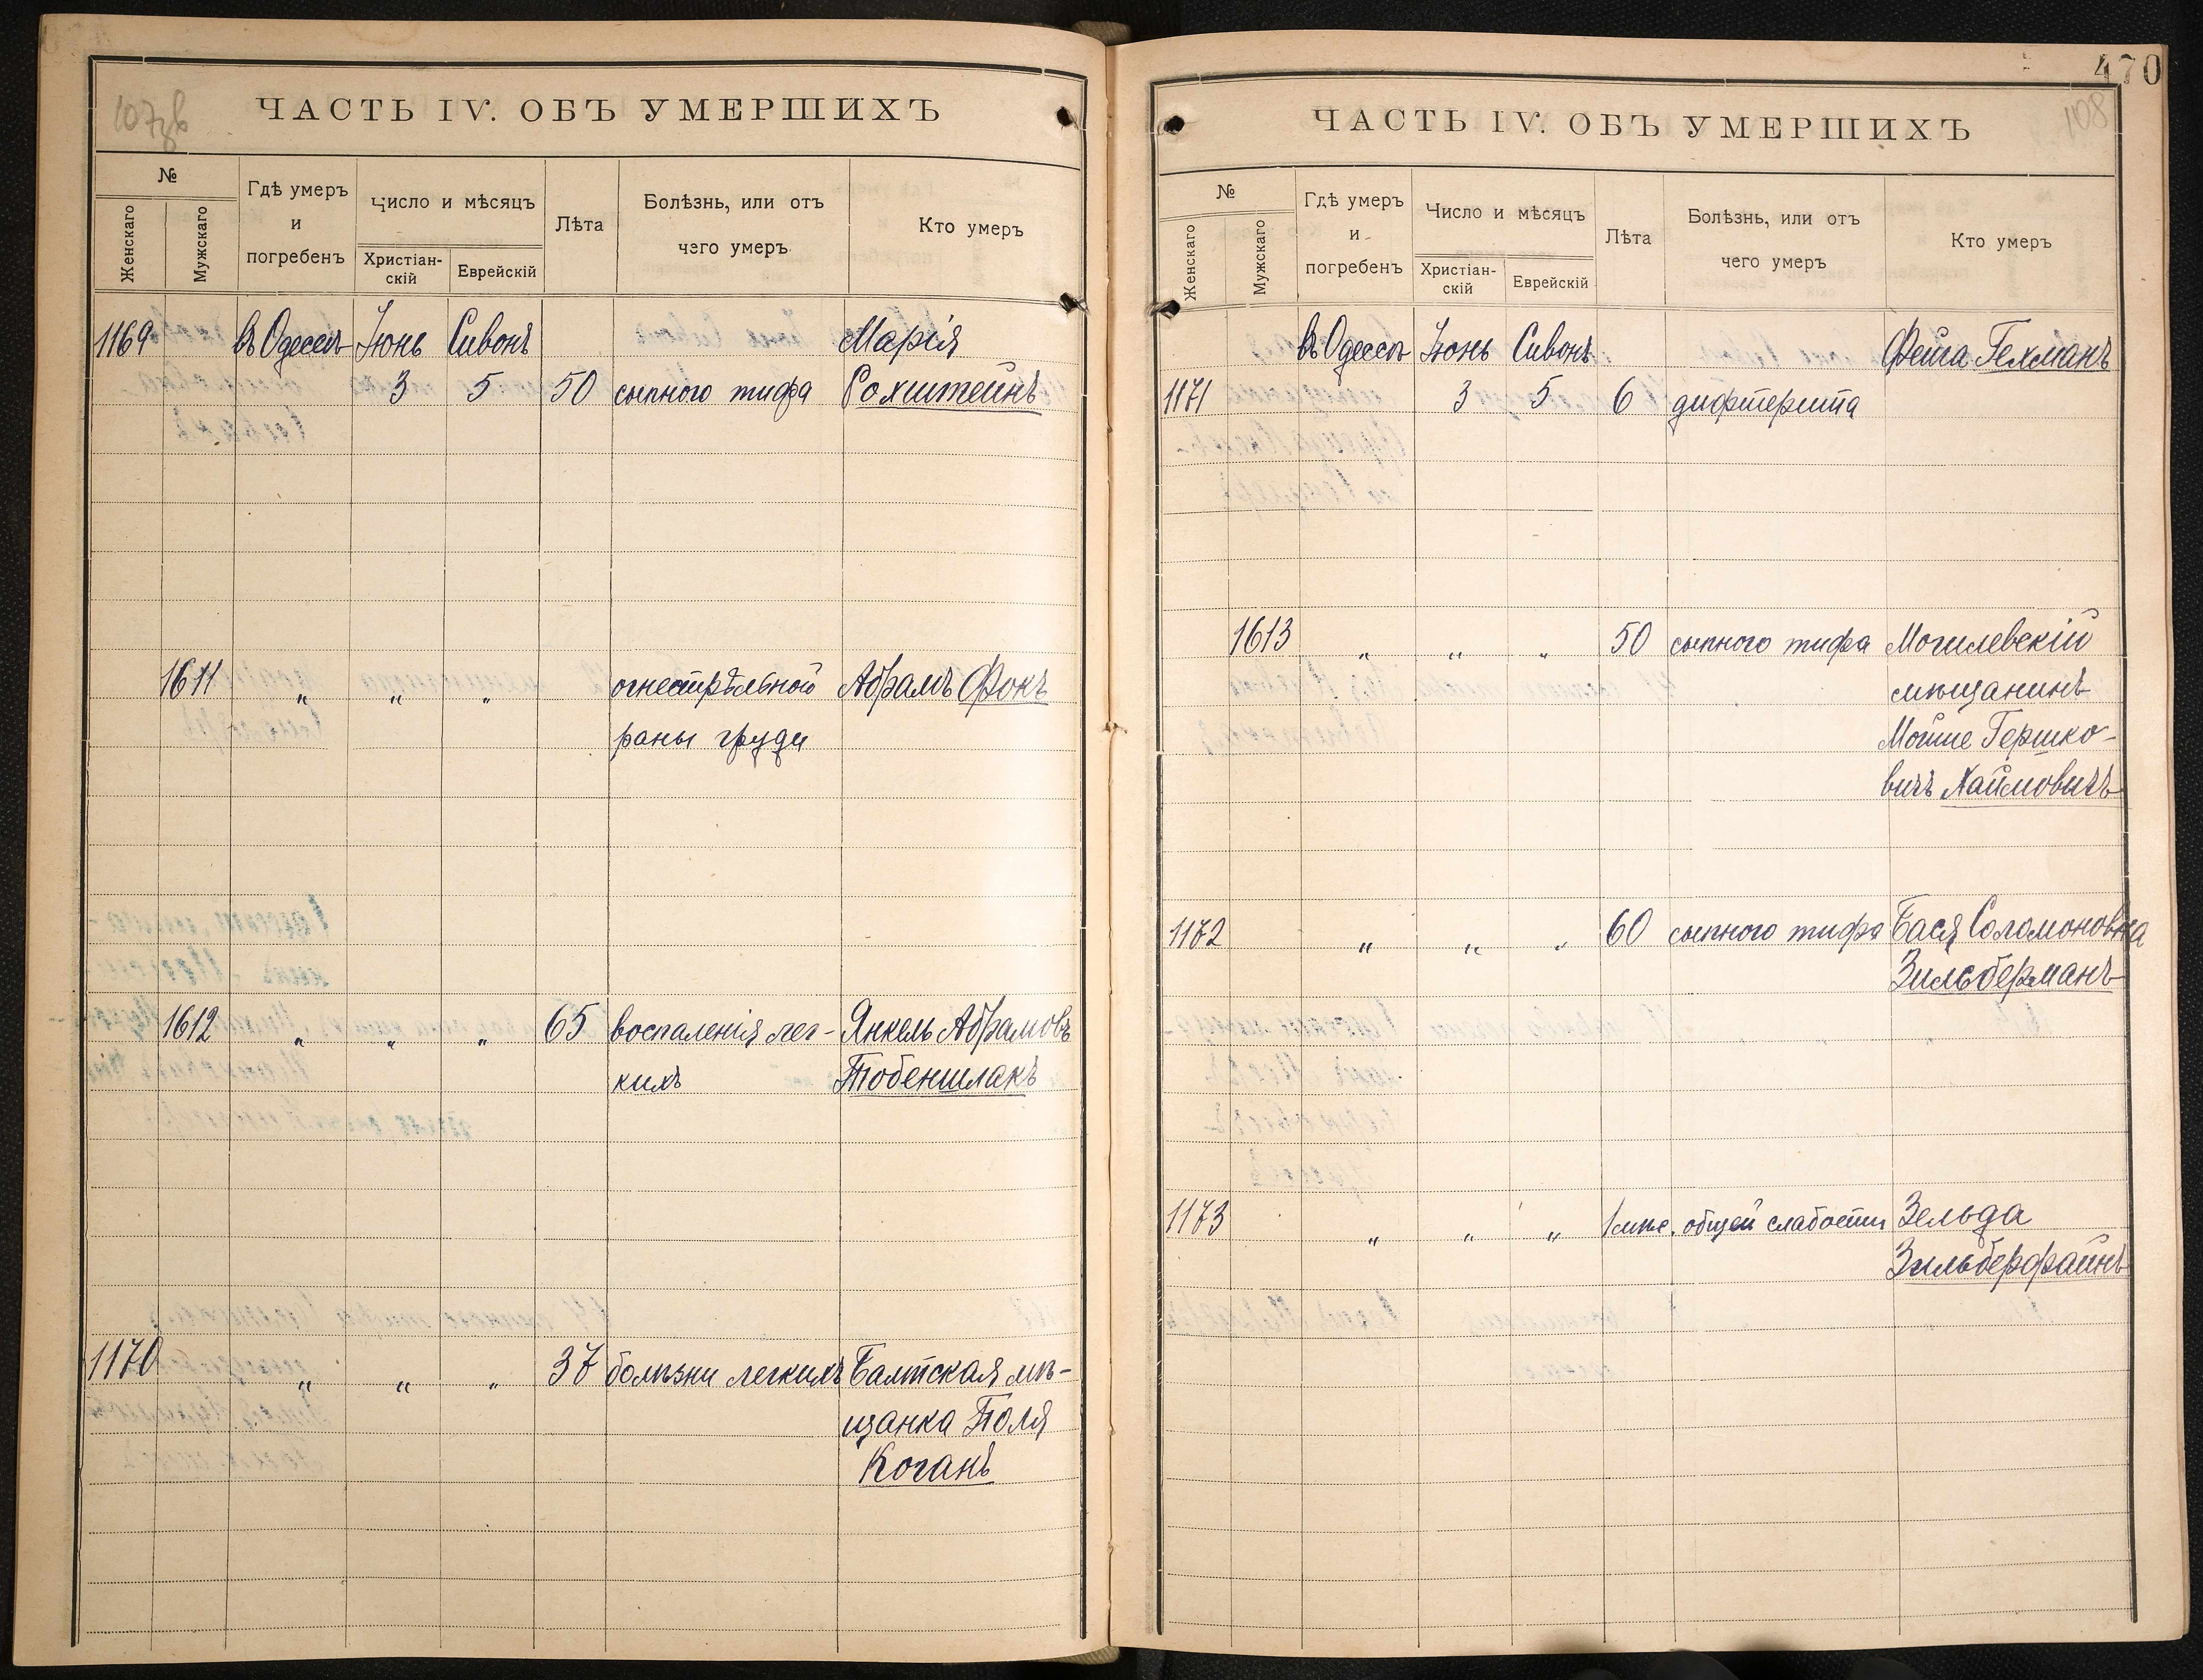 107 об
ЧАСТЬ IV. ОБЪ УМЕРШИХЪ
№
Женскаго
Мужскаго
Гдѣ умеръ
и
погребенъ
Число и мѣсяцъ
Христіан-
скій
Еврейскій
Лѣта
Болѣзнь, или отъ
чего умеръ
Кто умеръ
1169 въ Одессѣ Іюнь Сивонъ Марія
3 5 50 сыпного тифа Рохштейнъ
1611 „ „ „ огнестрѣльной Абрамъ Фокъ
раны груди
1612 „ „ „ 65 воспаленія лег- Янкель Абрамовъ
кихъ Тобеншлакъ
1170 „ „ „ 37 болѣзни легкихъ Балтская мѣ-
щанка Поля
Коганъ
470
108
ЧАСТЬ IV. ОБЪ УМЕРШИХЪ
№
Женскаго
Мужскаго
Гдѣ умеръ
и
погребенъ
Число и мѣсяцъ
Христіан-
скій
Еврейскій
Лѣта
Болѣзнь, или отъ
чего умеръ
Кто умеръ
въ Одессѣ Іюнь Сивонъ Фейга Гехманъ
1171 3 5 6 дифтерита
1613 „ „ „ 50 сыпного тифа Могилевскій
мѣщанинъ
Мойше Гершко-
вичъ Хаймовичъ
1172 „ „ „ 60 сыпного тифа Бася Соломоновна
Зильберманъ
1173 „ „ „ 1 мѣс. общей слабости Зельда
Зильберфайнъ